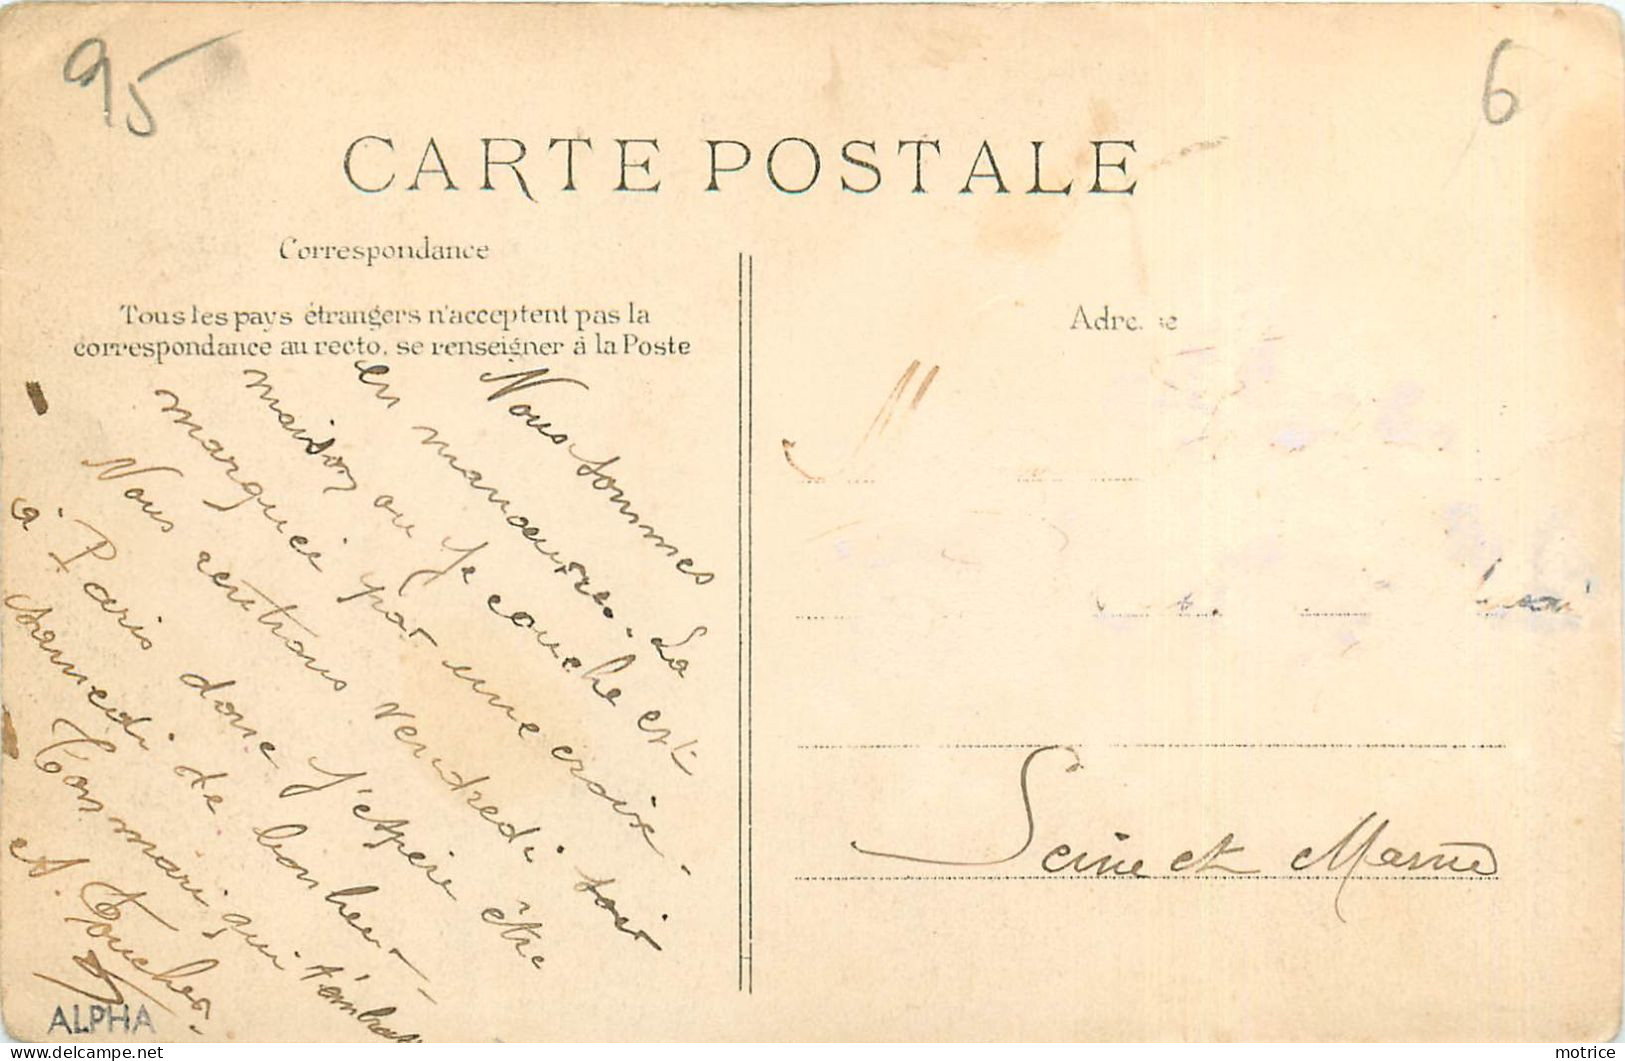 95
6
CARTE POSTALE
Correspondance
Tous les pays étrangers n'acceptent pas la
correspondance au recto, se renseigner à la Poste
Adresse
Nous sommes
en manœuvres. La
maison ou je couche est
marquée par une croix.
Nous rentrons vendredi soir
à Paris donc j'espère être
samedi de bonheur
Ton mari qui t'embrasse
A. Foucher
M
Seine et Marne
ALPHA
motrice